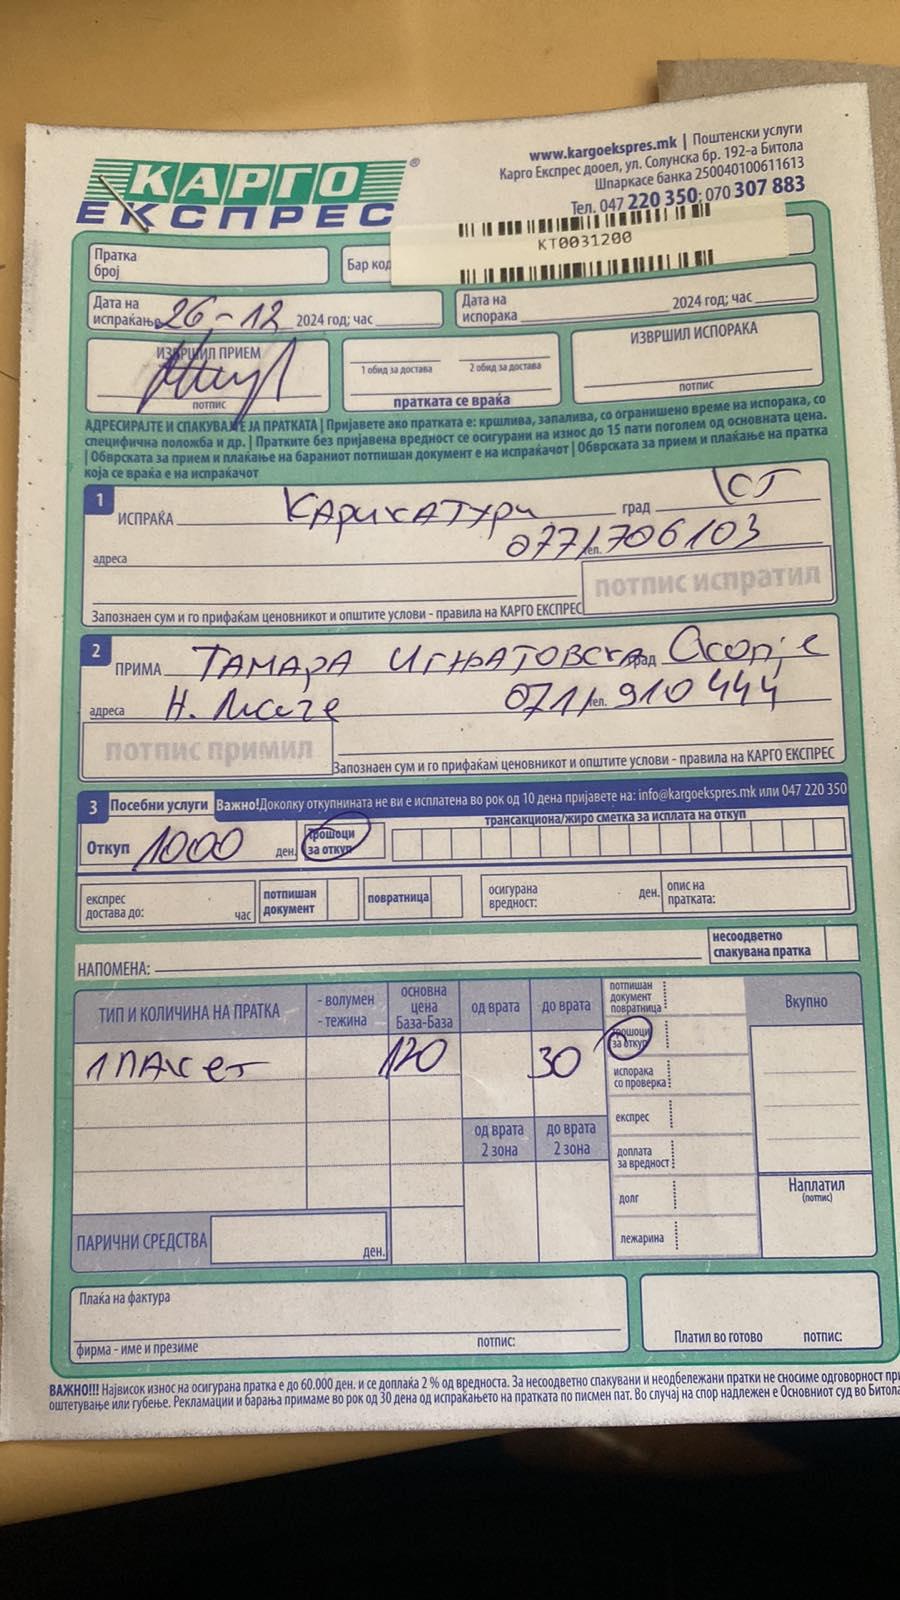 КАРГО®
ЕКСПРЕС
www.kargoekspres.mk | Поштенски услуги
Карго Експрес дооел, ул. Солунска бр. 192-а Битола
Шпаркасе банка 250040100611613
Тел. 047 220 350; 070 307 883
KT0031200
Пратка
број
Бар код
Дата на
испраќање 26-12 2024 год; час
Дата на
испорака 2024 год; час
ИЗВРШИЛ ПРИЕМ
потпис
1 обид за достава 2 обид за достава
пратката се враќа
ИЗВРШИЛ ИСПОРАКА
потпис
АДРЕСИРАЈТЕ И СПАКУВАЈТЕ ЈА ПРАТКАТА | Пријавете ако пратката е: кршлива, запалива, со ограничено време на испорака, со
специфична положба и др. | Пратките без пријавена вредност се осигурани на износ до 15 пати поголем од основната цена.
| Обврската за прием и плаќање на бараниот потпишан документ е на испраќачот | Обврската за прием и плаќање на пратка
која се враќа е на испраќачот
1 ИСПРАЌА Карикатури град КТ
адреса тел. 077/706103
потпис испратил
Запознаен сум и го прифаќам ценовникот и општите услови - правила на КАРГО ЕКСПРЕС
2 ПРИМА Тамара Игњатовска град Скопје
адреса Н. Лисиче тел. 071/910 444
потпис примил
Запознаен сум и го прифаќам ценовникот и општите услови - правила на КАРГО ЕКСПРЕС
3 Посебни услуги Важно! Доколку откупнината не ви е исплатена во рок од 10 дена пријавете на: info@kargoekspres.mk или 047 220 350
трансакциона/жиро сметка за исплата на откуп
Откуп 1000 ден. трошоци
за откуп
експрес
достава до: час
потпишан
документ
повратница
осигурана
вредност: ден.
опис на
пратката:
НАПОМЕНА:
несоодветно
спакувана пратка
ТИП И КОЛИЧИНА НА ПРАТКА
- волумен
- тежина
основна
цена
База-База
од врата
до врата
потпишан
документ
повратница
Вкупно
1 ПАКЕТ 120 30
трошоци
за откуп
испорака
со проверка
експрес
од врата
2 зона
до врата
2 зона
доплата
за вредност
долг
лежарина
Наплатил
(потпис)
ПАРИЧНИ СРЕДСТВА ден.
Плаќа на фактура
фирма - име и презиме потпис:
Платил во готово потпис:
ВАЖНО!!! Највисок износ на осигурана пратка е до 60.000 ден. и се доплаќа 2 % од вредноста. За несоодветно спакувани и необдбележани пратки не сносиме одговорност при
оштетување или губење. Рекламации и барања примаме во рок од 30 дена од испраќањето на пратката по писмен пат. Во случај на спор надлежен е Основниот суд во Битола